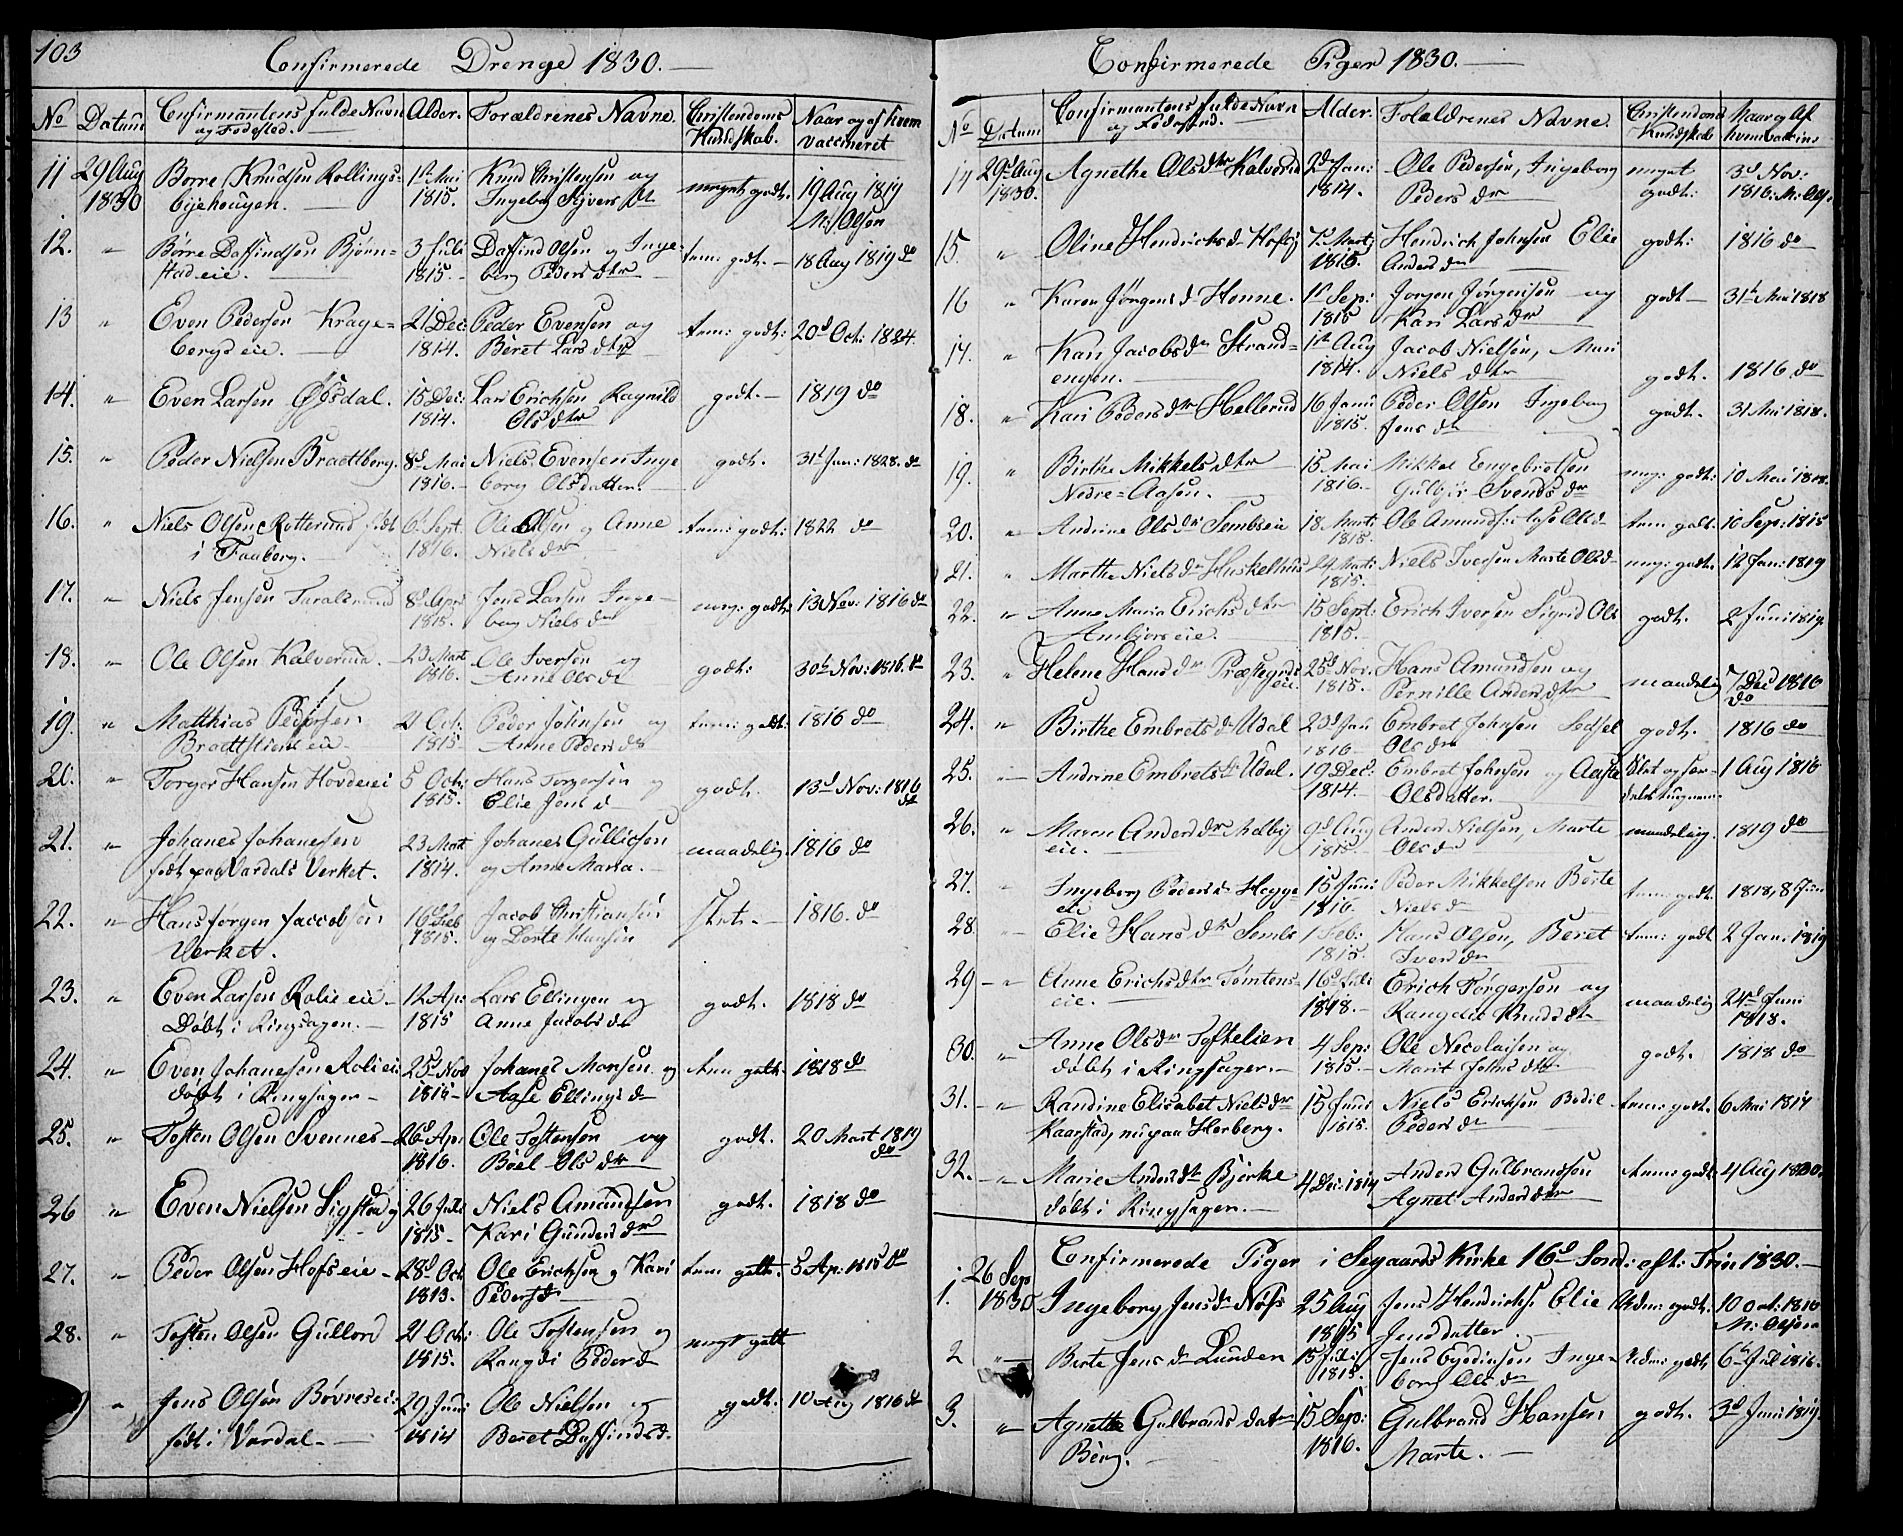 103
Confirmerede Drenge 1830.
No Datum Confirmantens fulde Navn og Fødested. Alder. Forældrenes Navne. Christendoms Kundskab. Naar og af hvem vaccineret
11 29 Aug 1830 Børre Knudsen Rollings- 1ste Mai 1815. Knud Christensen og meget godt. 19 Aug 1819
eiehougen. Ingeborg M: Olsen
12. " Børre Daffindsen Bjørn- 3 Juli 1815. Daffind Olsen og Inge- tem: godt. 18 Aug 1819 do
stadeie. borg Peders dtr
13 " Even Pedersen Krage- 21 Dec: 1814. Peder Evensen og tem: godt: 20d Oct: 1824.
bergseie. Beret Lars dtr
14. " Even Larsen Øisdal. 15 Dec: 1814. Lars Erichsen Ragnild godt. 1819 do
Ols dtr
15. " Peder Nielsen Braettberg. 8d Mai 1816. Niels Evensen Inge godt. 31d Jan: 1828. do
borg Olsdatter.
16. " Niels Olsen Rotterund født 6 Sept. 1816. Ole Olsen og Anne tem: godt: 1822 do
i Faaberg. Niels dr
17. " Niels Jensen Taralsrund 8d Apri 1815. Jens Larsen Inge- meg: godt: 13 Nov: 1816 do
borg Niels dr
18. " Ole Olsen Kalverud. 23 Mart 1816. Ole Iversen og godt: 30te Nov: 1816. do
Anne Ols dr
19. " Matthias Pedersen 21 Oct: 1815 Peder Johnsen og tem: godt: 1816 do
Braettlienseie Anne Peders dr
20. " Torger Hansen Hovdeeiei 5 Oct: 1815. Hans Torgersen og godt. 13d Nov: 1816 do
Elie Jens d
21. " Johanes Johanesen 23 Mart 1814. Johanes Gullicsen maadelig. 1816 do
født paa Vardals Verket. og Anne Maria.
22. " Hans Jørgen Jaccobsen 16d Feb 1815. Jacob Christiansen slet. 1816. do
Verket. og Dorte Hansen
23. " Even Larsen Rolieeie 12 Ap: 1815 Lars Ellingsen og godt. 1818 do
Døbt i Ringsagen. Anne Jacobs dr
24. " Even Johanesen Rolieei 25d Nov 1815 Johanes Monsen og tem godt. 1818 do
døbt i Ringsager Aase Ellings d
25. " Tosten Olsen Svennes 26d Ap. 1816. Ole Tostensen og godt. 20 Mart 1819 do
Boel Ols dr
26 " Even Nielsen Sigstad 26 Juli 1815 Niels Amundsen godt. 1818 do
Kari Gunders dr
27. " Peder Olsen Hofseie 28d Oct 1813. Ole Erichsen og Kari tem: godt. 5 Ap: 1815 do
Peders d
28. " Tosten Olsen Gullord 21 Oct: 1815. Ole Tostensen og megt godt
Rangdi Peder d
" Jens Olsen Bøvreseie: 29 Juni 1814 Ole Nielsen og godt: 10 Aug 1816 do
født i Vardal. Beret Daffinds d.
Confirmerede Piger 1830.
No Datum Confirmantens fulde Navn og Fødested. Alder. Forældrenes Navne. Christendoms Kundskab Naar og Af hvem vaccine
14 29d Aug 1830. Agnethe Ols dtr Kalverud 2d Jan: 1814. Ole Pedersen, Ingeborg meget godt: 3d Nov: 1816. M: Ols.
Peders dr
15. " Oline Hendrichs d Hofbÿ 7d Martz 1815. Hendrich Johnsen Elie godt: 1816 do
Anders dr
16 " Karen Jørgens d Honne. 1st Sep: 1815 Jorgen Jørgensen og godt 31te Mai 1818
Kari Lars dr
17. " Kari Jacobs dr Strand- 1st Aug 1814. Jacob Nielsen, Mari godt. 1816 do
engen. Niels dtr
18. " Kari Peders dtr Hellerud 16 Janu 1815. Peder Olsen Ingeborg godt. 31 Mai 1818.
Jens dr
19. " Birthe Mikkels dtr 15 Mai 1816. Mikkel Engebretsen meg: godt: 10 Mai 1818.
Nedre-Aasen. Svends dr
20. " Andrine Ols dr Sembseie 18 Marti 1815. Ole Amunds: Aase Ols d tem godt. 16 Sep: 1815
21. " Marthe Niels dr Huskelhus 24 Marti 1815. Niels Iversen Marte Ols d meg: godt. 12 Jan: 1819
22. " Anne Maria Erichs dtr 15 Sept: 1815. Erich Iversen Sigrid Ols godt. 2 Juni 1819
eie.
23. " Helene Hans dr Præstegrds 25d Nov. 1815. Hans Amundsen og maadelig 7 Dec 1816
eie Pernille Anders dtr do
24. " Birthe Embrets dr Udal 23d Juni 1816 Embret Johnsen Sedsel godt. 1816 do
Ols dr
25. Andrine Embrets dr Udal. 19 Dec: 1814. Embret Johnsen og Aaste Slet 1 Aug 1816
Olsdatter.
26. " Maren Anders dr Melbÿ 9d Aug 1815 Anders Nielsen, Marte maadelig. 1819 do
eie. Ols dr
27. " Ingeborg Peders d Hegge 15 Juni 1816. Peder Mikkelsen Berte tem: godt. 1818, 8 Jun
ei Niels dr
28. " Elie Hans dtr Sembs 1 Feb: 1815. Hans Olsen, Beret tem: godt 2 Jan: 1819
Ivers dr
29 " Anne Erichs dtr Tomtens- 16d Juli 1818. Erich Torgersen og maadelig 24d Juni 1818.
eie. Rangdi Knuds dtr
30. " Anne Ols dr Toftelien 4 Sep: 1815. Ole Necolaisen og godt. 1818 do
døbt i Ringsager. Marit Johns dtr
31. " Randine Elisabet Niels dr 15 Juni 1815. Niels Ericksen Bodil tem: godt. 6 Mai 1817
Kaarstad, nu paa Herberg. Peders dr
32. " Marie Anders dtr Bjerke 4 Dec: 1814 Anders Gulbrandsen tem: godt 4 Aug 1820.
døbt i Ringsagen. Agnet Anders dtr
Confirmerede Piger i Segaards Kirke 16d Sond: eft: Trin 1830.
1. 26 Sep 1830 Ingeborg Jens dr Nøss 25 Aug 1815 Jens Hendrichs: Elie tem: godt: 10 oct: 1816
Jensdatter. M: Olsen
2 " Berte Jens dr Lunden 15 Juli 1815. Jens Eÿstinsen Inge- tem: godt. 6te Jul 1816.
borg Ols dr
3. " Agnette Gulbrands dater 15 Sep: 1816. Gulbrand Hansen godt. 3d Juni 1819.
Berg. Marte.